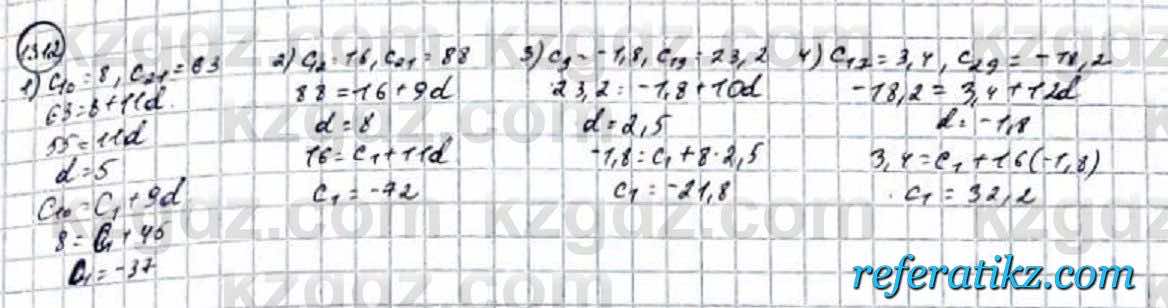 1312
1) c₁₀ = 8, c₂₁ = 63
63 = 8 + 11d
55 = 11d
d = 5
c₁₀ = c₁ + 9d
8 = c₁ + 45
c₁ = -37
2) c₁₂ = 16, c₂₁ = 88
88 = 16 + 9d
d = 8
16 = c₁ + 11d
c₁ = -72
3) c₉ = -1,8, c₁₉ = 23,2
23,2 = -1,8 + 10d
d = 2,5
-1,8 = c₁ + 8·2,5
c₁ = -21,8
4) c₁₇ = 3,4, c₂₉ = -18,2
-18,2 = 3,4 + 12d
d = -1,8
3,4 = c₁ + 16(-1,8)
c₁ = 32,2
kzgdz.com
referatikz.com